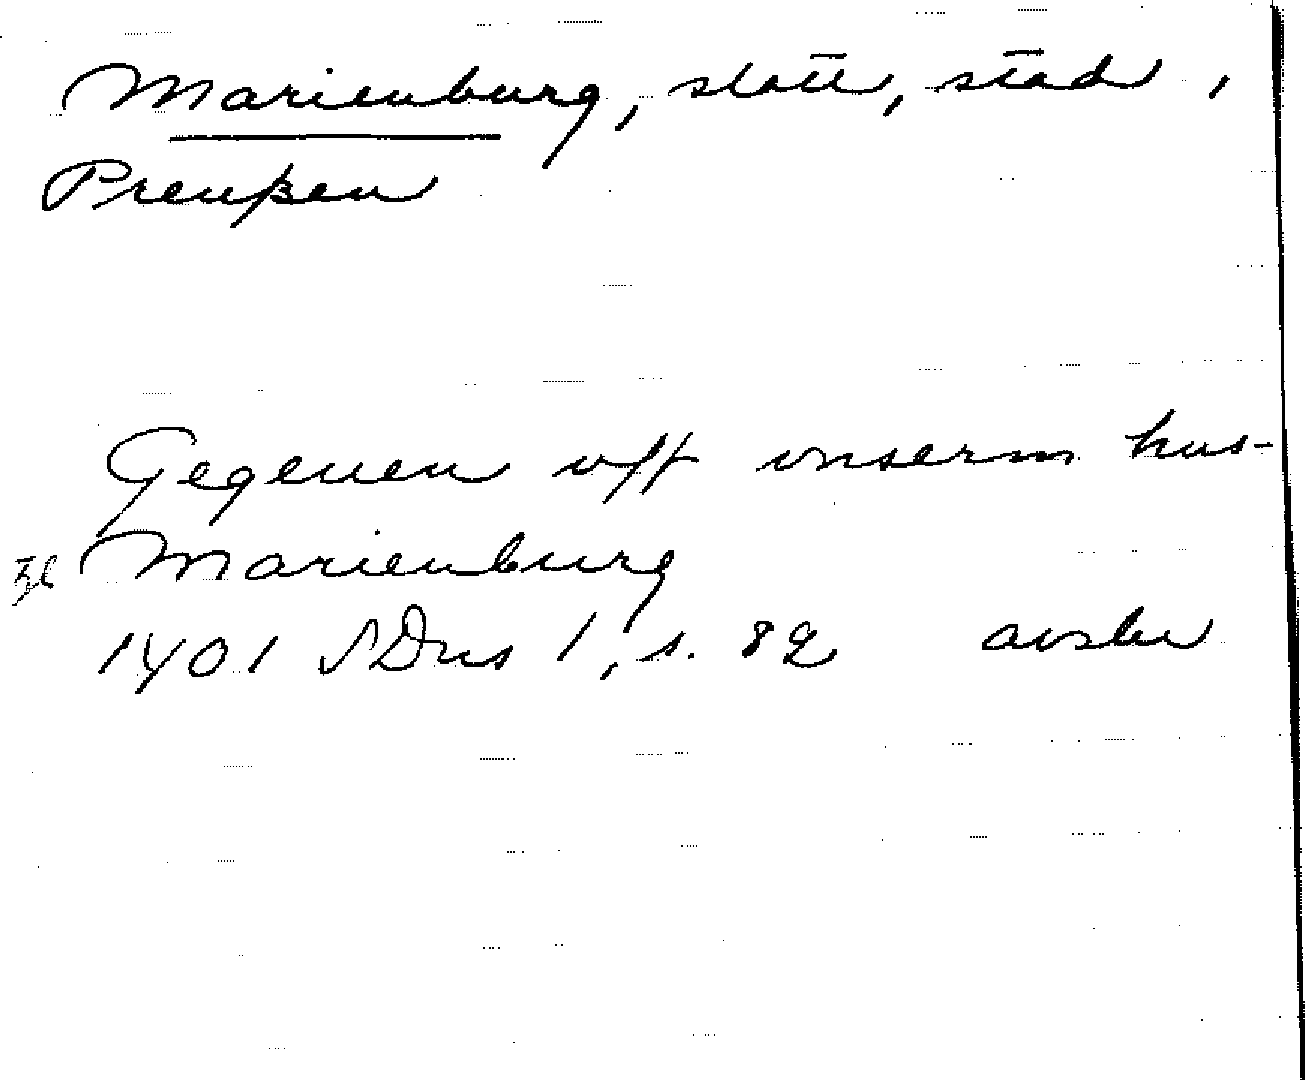 Marienburg, slott, stad,
Preußen
Gegeuen vff vnserm hus-
Marienburg
1401 SDns 1, s. 82 avskr